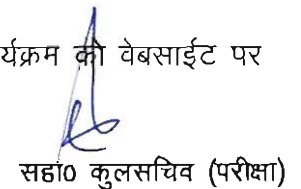 र्यक्रम को वेबसाईट पर
सहा0 कुलसचिव (परीक्षा)